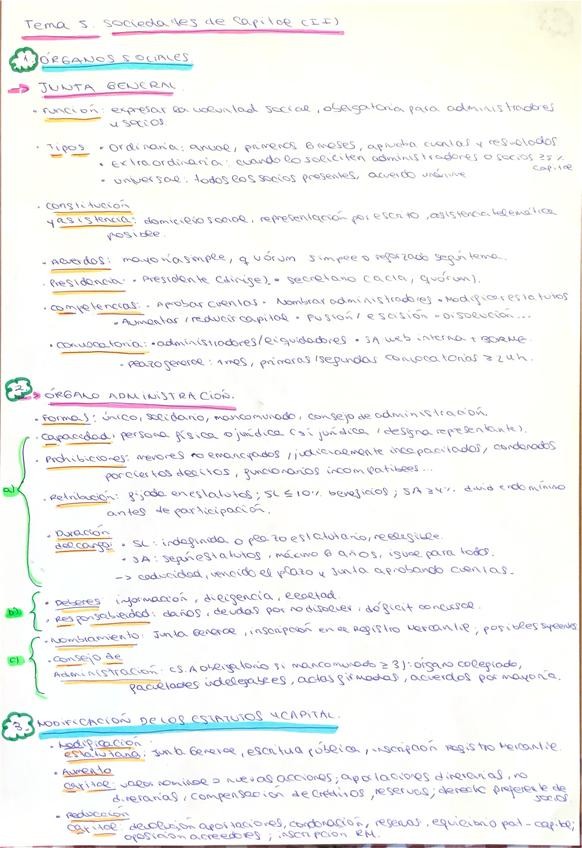 Tema 5. Sociedades de Capital (II)
1 ÓRGANOS SOCIALES
→ JUNTA GENERAL.
· Función: expresar la voluntad social, obligatoria para administradores
y socios.
· Tipos • Ordinaria: anual, primeros 6 meses, aprueba cuentas y resultados
• Extraordinaria: cuando lo soliciten administradores o socios ≥5%
capital
• Universal: todos los socios presentes, acuerdo unánime
· Constitución
y asistencia: domicilio social, representación por escrito, asistencia telemática
posible.
· Acuerdos: mayoría simple, quórum simple o reforzado según tema.
· Presidencia: • Presidente (dirige). • Secretario (acta, quórum).
· Competencias: • Aprobar cuentas • Nombrar administradores • Modificar estatutos
• Aumentar/reducir capital • Fusión/escisión • Disolución...
· Convocatoria: • administradores/liquidadores • SA web interna + BORME.
• Plazo general: 1 mes, primeras/segundas convocatorias ≥24h.
2 → ÓRGANO ADMINISTRACIÓN.
· Formas: único, solidario, mancomunado, consejo de administración.
· Capacidad: persona física o jurídica (si jurídica, designa representante).
a) · Prohibiciones: menores no emancipados, judicialmente incapacitados, condenados
por ciertos delitos, funcionarios incompatibles...
· Retribución: fijada en estatutos; SL ≤10% beneficios; SA ≥4% dividendo mínimo
antes de participación.
· Duración
del cargo: • SL: indefinida o plazo estatutario, reelegible.
• SA: según estatutos, máximo 6 años, igual para todos.
→ caducidad, vencido el plazo y junta aprobando cuentas.
b) · Deberes información, diligencia, lealtad.
· Responsabilidad: daños, deudas por no disolver, déficit concursal.
· Nombramiento: Junta General, inscripción en el Registro Mercantil, posibles suplentes
c) · Consejo de
Administración: (S.A obligatorio si mancomunado ≥3): órgano colegiado,
facultades indelegables, actas firmadas, acuerdos por mayoría.
3. MODIFICACIÓN DE LOS ESTATUTOS Y CAPITAL.
· Modificación
estatutaria: Junta General, escritura pública, inscripción Registro Mercantil.
· Aumento
capital: valor nominal o nuevas acciones; aportaciones dinerarias, no
dinerarias, compensación de créditos, reservas; derecho preferente de
socios.
· Reducción
capital: devolución aportaciones, condonación, reservas, equilibrio pat-capital;
oposición acreedores; inscripción RM.